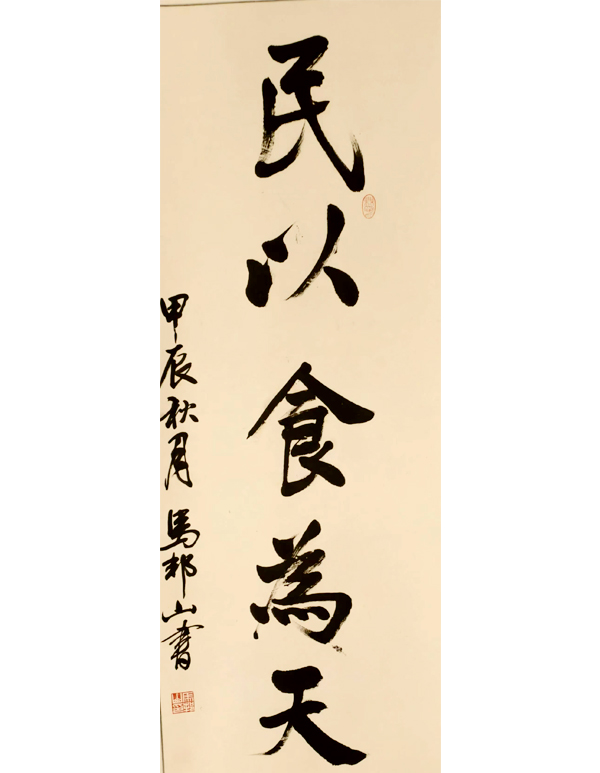 民以食為天
甲辰秋月馬邦山書